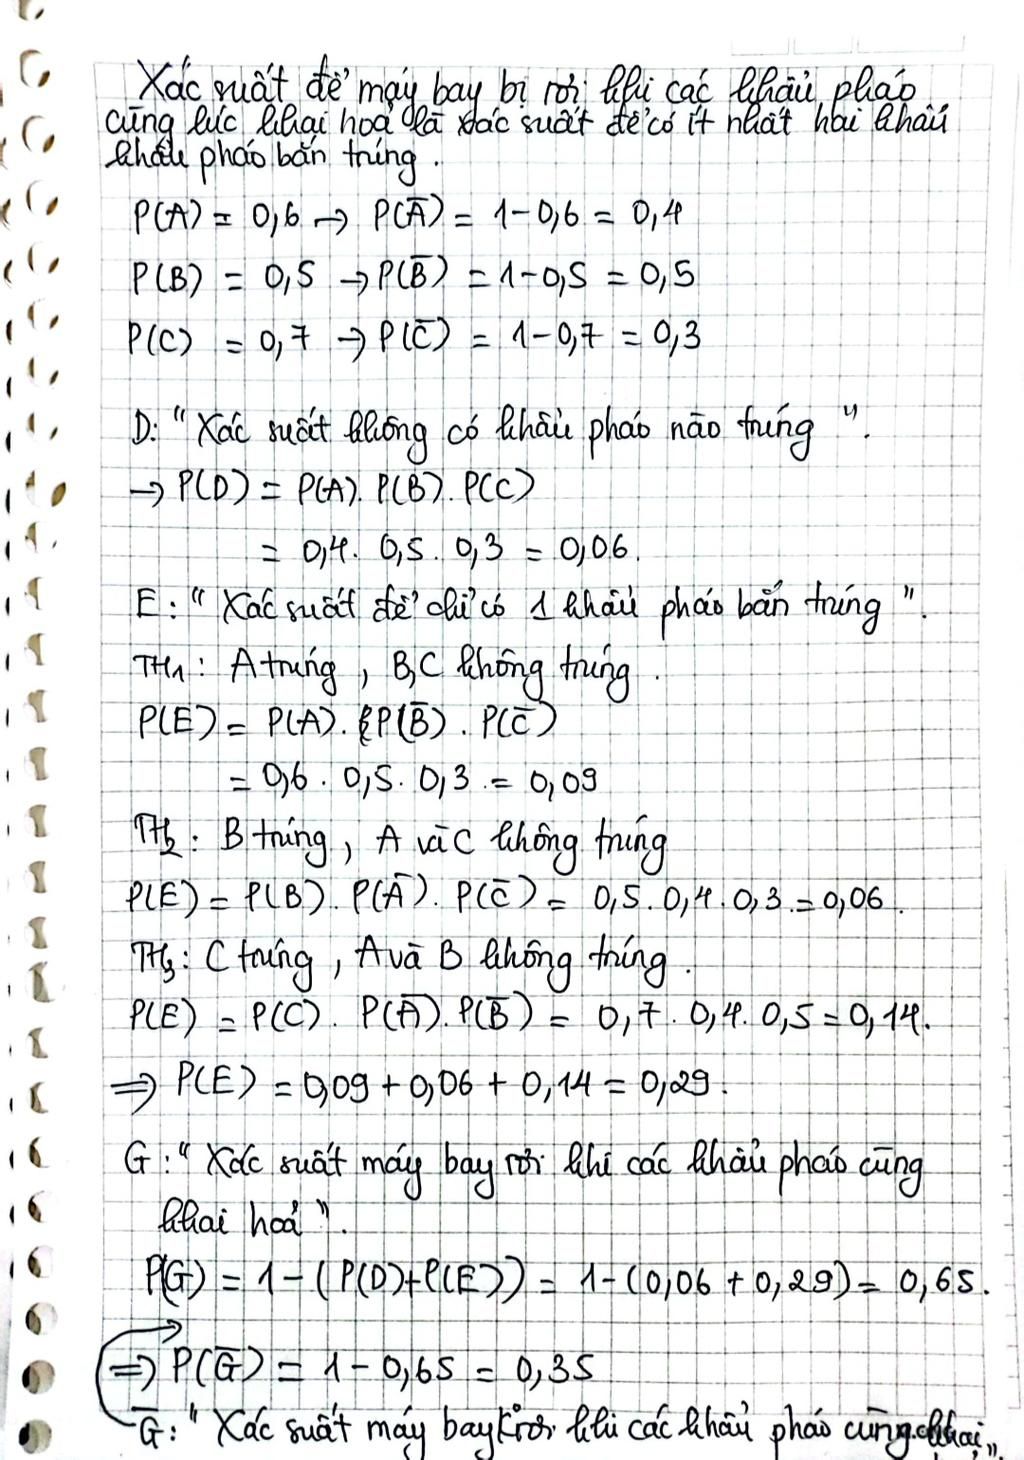 Xác suất để máy bay bị rơi khi các khẩu pháo
cùng lúc khai hoả là xác suất để có ít nhất hai khẩu
khẩu pháo bắn trúng.
P(A) = 0,6 → P(Ā) = 1-0,6 = 0,4
P(B) = 0,5 → P(B̄) = 1-0,5 = 0,5
P(C) = 0,7 → P(C̄) = 1-0,7 = 0,3
D: "Xác suất không có khẩu pháo nào trúng".
→ P(D) = P(A). P(B). P(C)
= 0,4. 0,5. 0,3 = 0,06.
E: "Xác suất để chỉ có 1 khẩu pháo bắn trúng".
TH1: A trúng, B,C không trúng.
P(E) = P(A). P(B̄). P(C̄)
= 0,6. 0,5. 0,3 = 0,09
TH2: B trúng, A và C không trúng
P(E) = P(B). P(Ā). P(C̄) = 0,5. 0,4. 0,3 = 0,06.
TH3: C trúng, A và B không trúng.
P(E) = P(C). P(Ā). P(B̄) = 0,7. 0,4. 0,5 = 0,14.
⇒ P(E) = 0,09 + 0,06 + 0,14 = 0,29.
G: "Xác suất máy bay rơi khi các khẩu pháo cùng
khai hoả".
P(G) = 1-(P(D)+P(E)) = 1-(0,06 + 0,29) = 0,65.
⇒ P(Ḡ) = 1 - 0,65 = 0,35
Ḡ: "Xác suất máy bay k° rơi khi các khẩu pháo cùng khai"